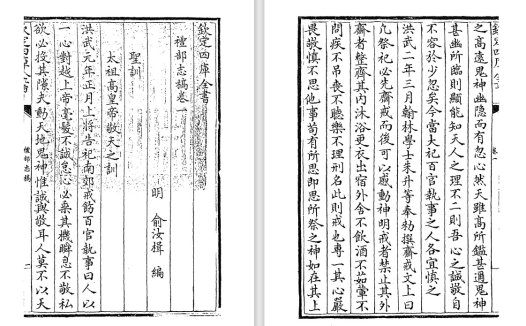 欽定四庫全書
禮部志稿卷一
明 俞汝楫 編
聖訓
太祖高皇帝敬天之訓
洪武元年正月上將告祀南郊戒飭百官執事曰人以
一心對越上帝毫髮不誠怠心必乘其機瞬息不敬私
欲必投其隙夫動天地鬼神惟誠與敬耳人莫不以天
禮部志稿
之高遠鬼神幽隱而有忽心然天雖高所鑑甚邇鬼神
雖幽所臨則顯能知天人之理不二則吾心之誠敬自
不容於少忽矣今當大祀百官執事之人各宜慎之
洪武二年三月翰林學士朱升等奉勅撰齋戒文上曰
凡祭祀必先齋戒而後可以感動神明戒者禁止其外
齋者整齊其內沐浴更衣出宿外舍不飲酒不茹葷不
問疾不弔喪不聽樂不理刑名此則戒也專一其心嚴
畏敬慎不思他事苟有所思即思所祭之神如在其上